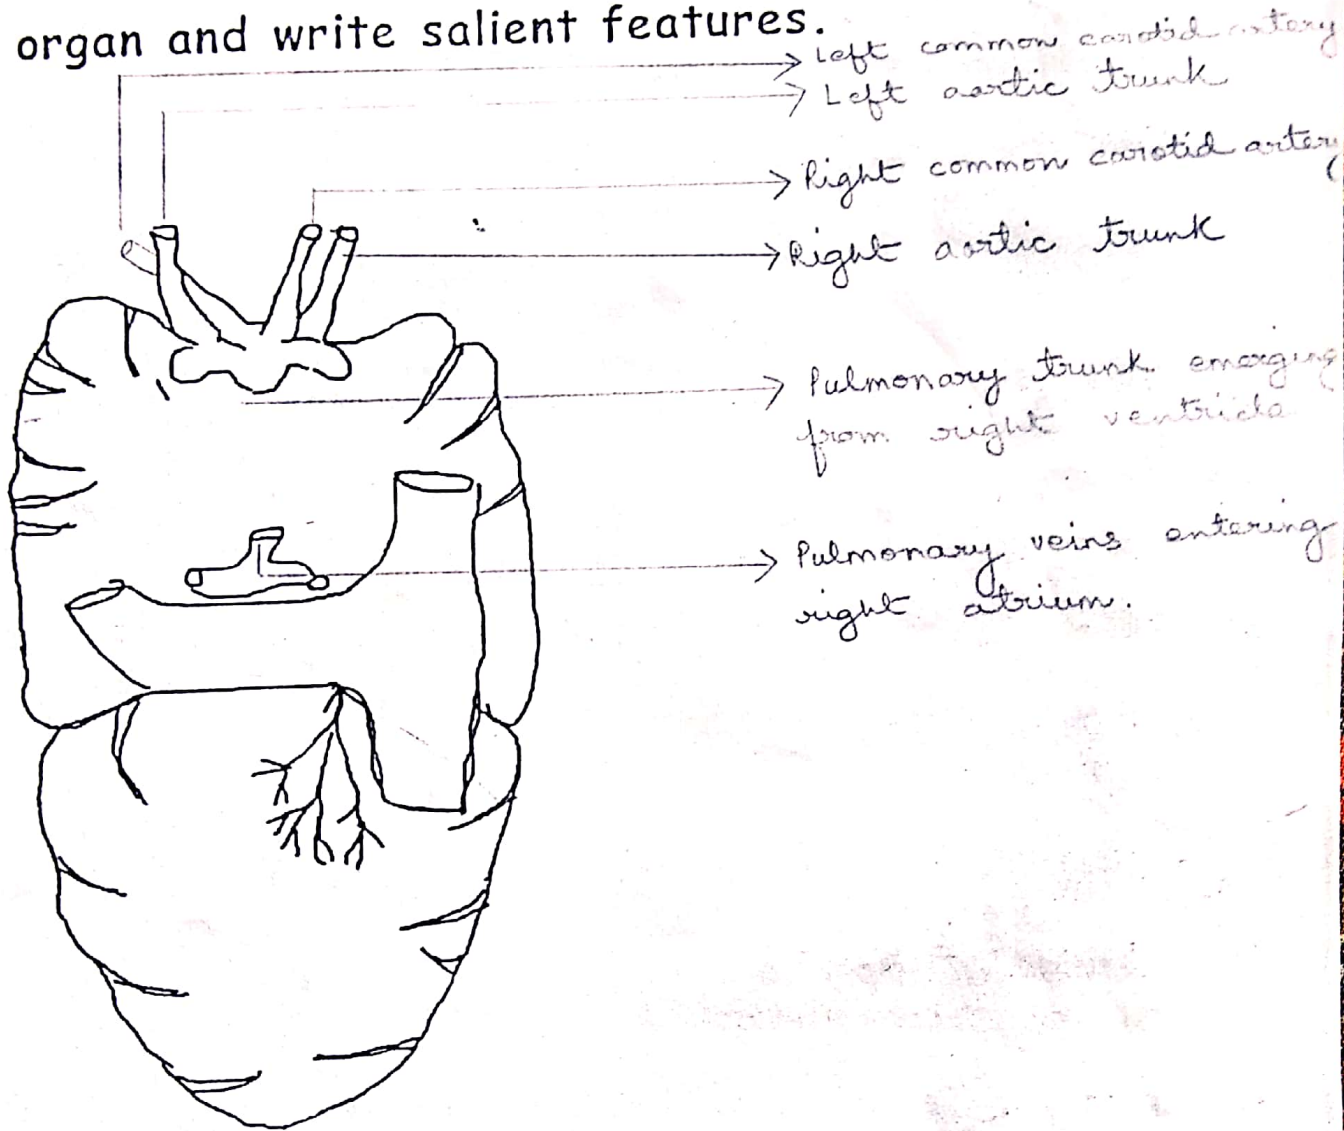 organ and write salient features.
Left common carotid artery
Left aortic trunk
Right common carotid artery
Right aortic trunk
Pulmonary trunk emerging
from right ventricle
Pulmonary veins entering
right atrium.